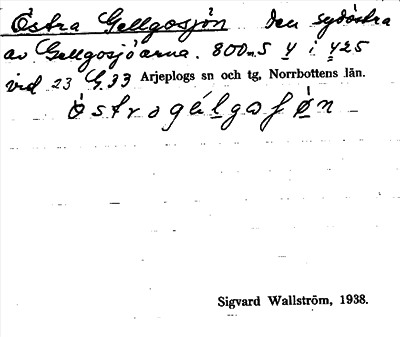 Östra Gellgosjön den sydöstra
av Gellgosjöarna. 800 m S 4 i 425
vid 23 G 33 Arjeplogs sn och tg, Norrbottens län.
Sigvard Wallström, 1938.